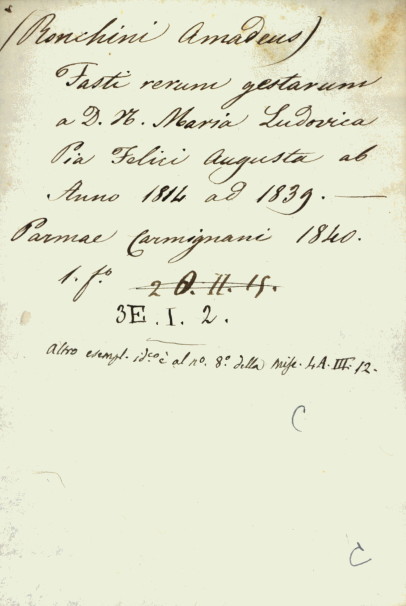 (Ronchini Amadeus)
Fasti rerum gestarum
a D. N. Maria Ludovica
Pia Felici Augusta ab
Anno 1814 ad 1839. —
Parmae Carmignani 1840.
1. f.º 2 O. II. 15.
3E. I. 2.
Altro esempl. id.cº è al nº. 8º. della Misc. 4A. III. 12.
C
C